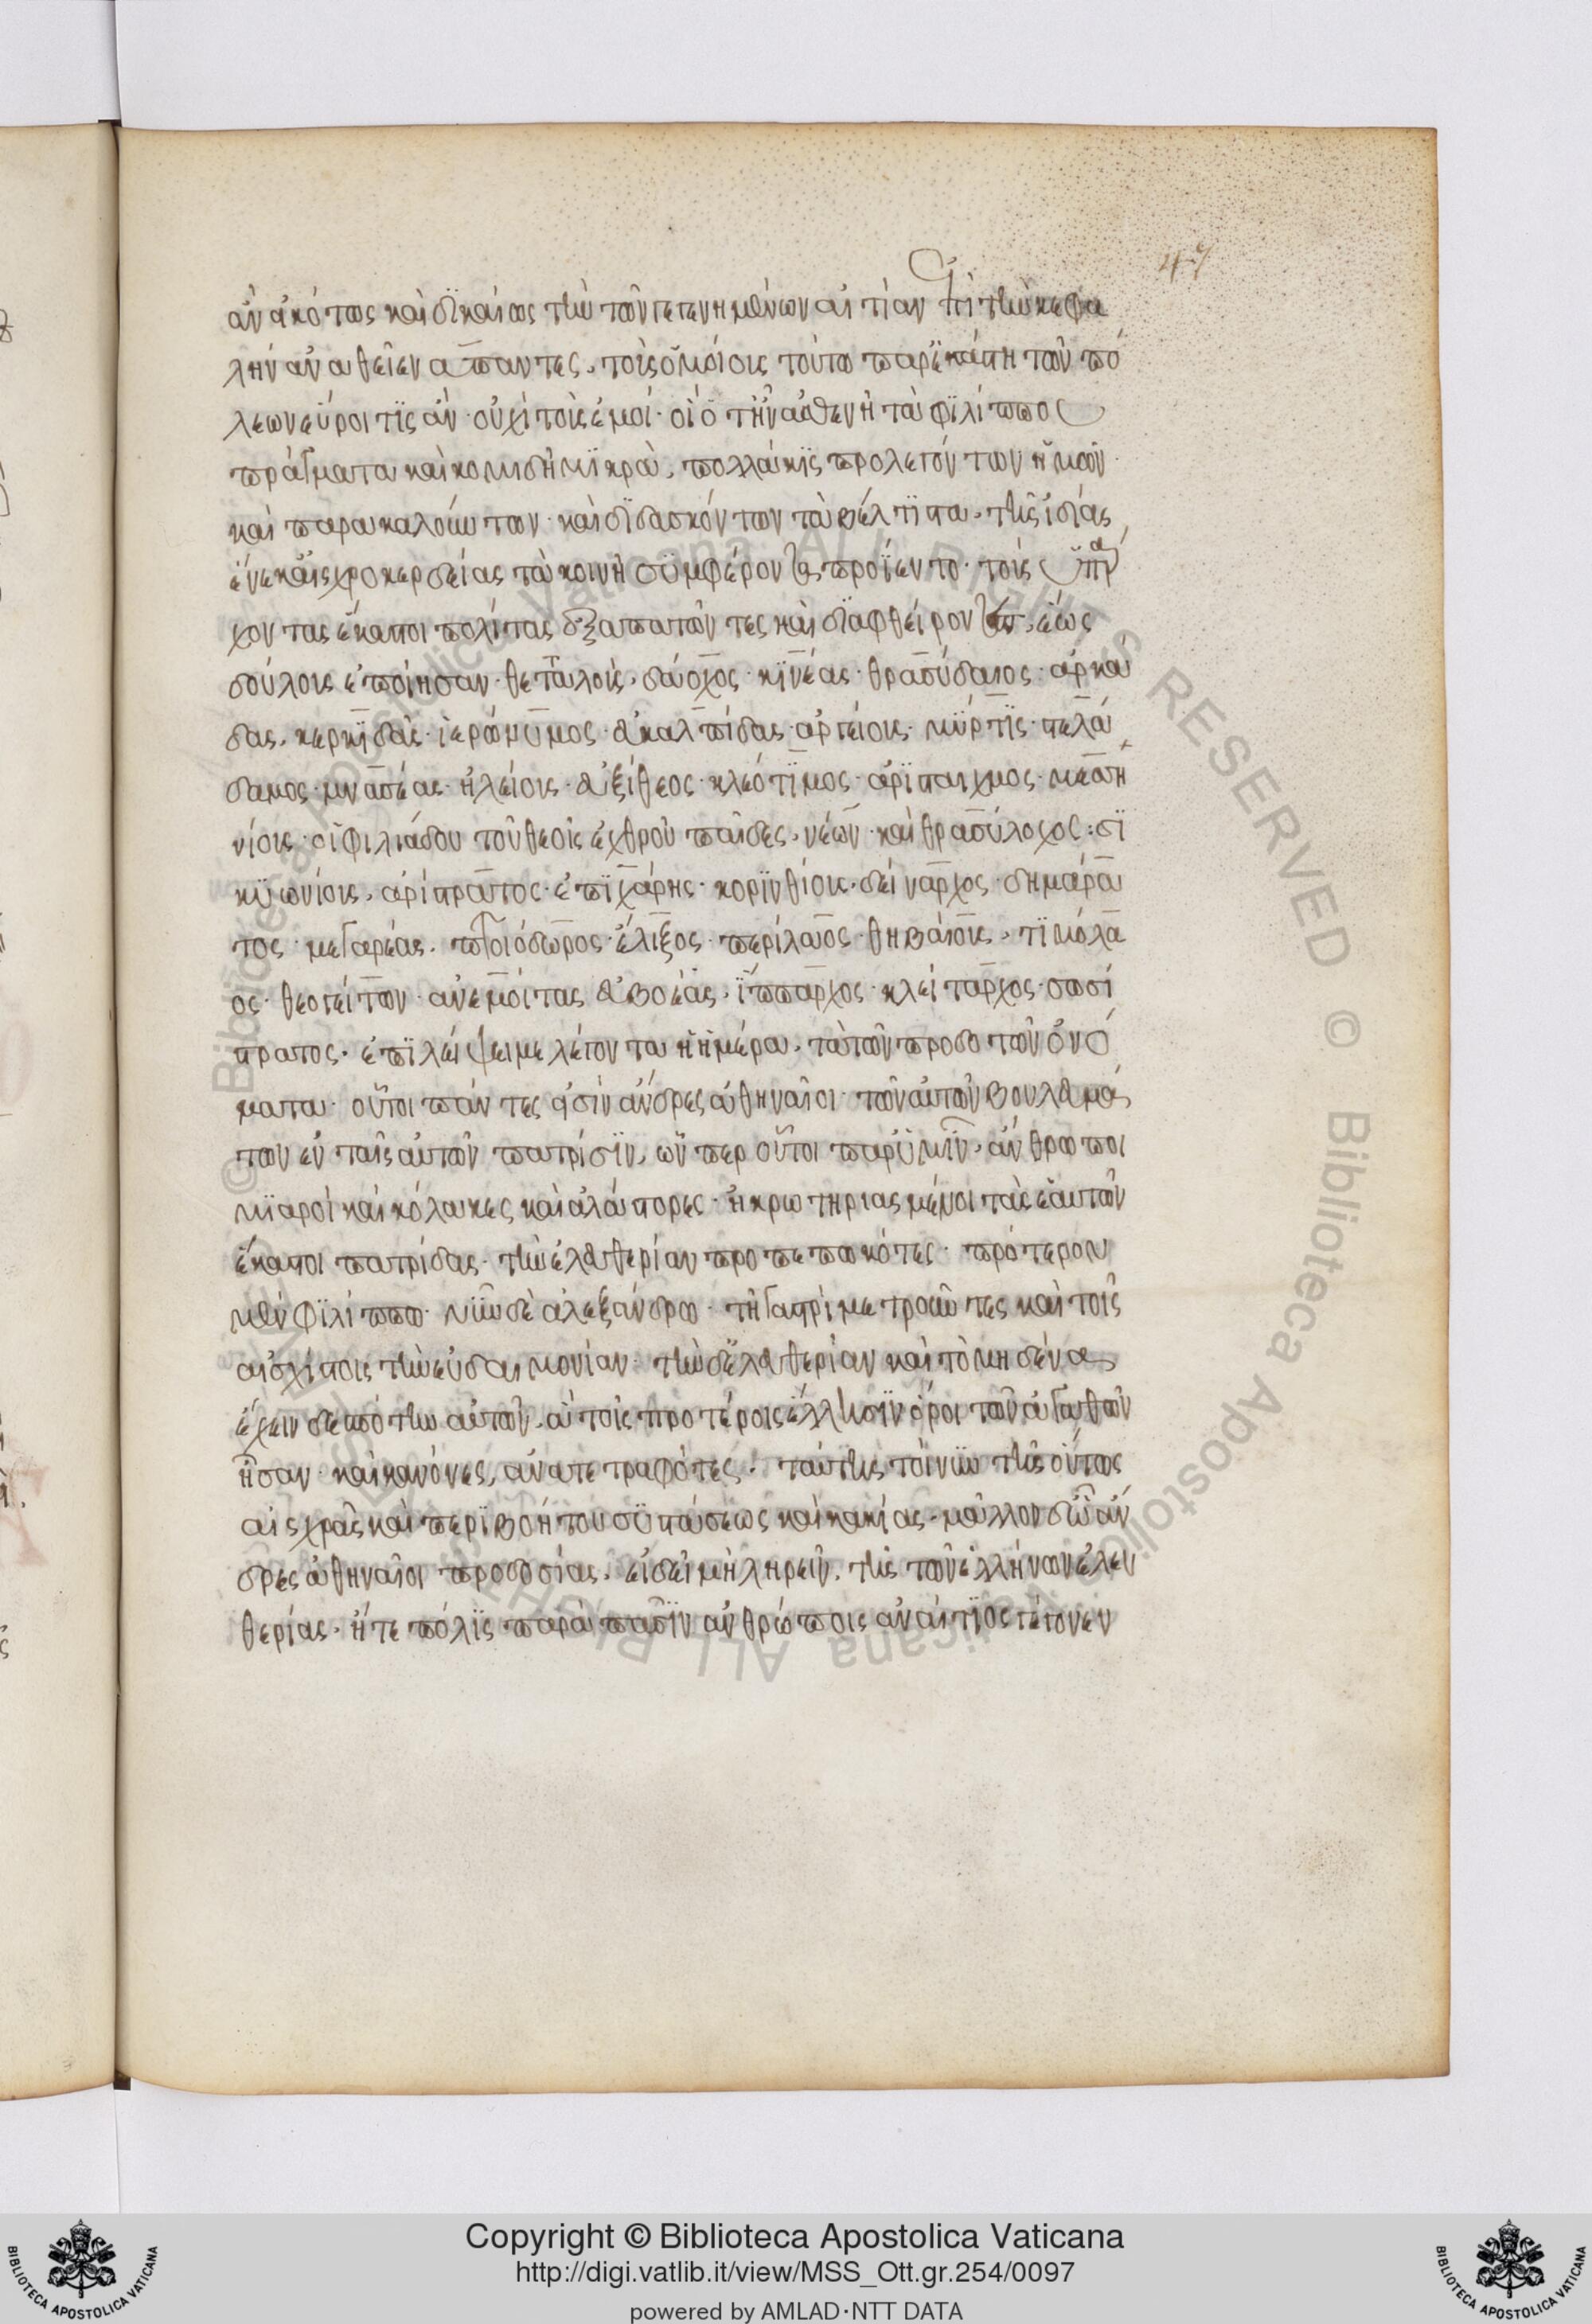 47
ἂν εἰκότως καὶ δικαίως τὴν τῶν γεγενημένων αἰτίαν ἐπὶ τὴν κεφα
λὴν ἀναθεῖεν ἅπαντες. τοῖς ὁμοίοις τούτω παρ' ἑκάστη τῶν πό
λεων εὕροι τις ἄν· οὐχὶ τοῖς ἐμοί· οἳ ὅτ' ἦν ἀσθενῆ τὰ φιλίππου
πράγματα καὶ κομιδῆ μικρά. πολλάκις προλεγόντων ἡμῶν·
καὶ παρακαλούντων· καὶ διδασκόντων τὰ βέλτιστα. τῆς ἰδίας
ἕνεκ' αἰσχροκερδείας τὰ κοινῆ συμφέροντα προΐεντο· τοὺς ὑπάρ
χοντας ἕκαστοι πολίτας ἐξαπατῶντες καὶ διαφθείροντες, ἕως
δούλους ἐποίησαν· θετταλούς, δάοχος· κινέας· θρασύδαιος· ἀρκά
δας, κερκιδᾶς· ἱερώνυμος· εὐκαλπίδας· ἀργείους· μύρτις· τελέ
δαμος· μνασέας· ἠλείους· εὐξίθεος· κλεότιμος· ἀρίσταιχμος· μεσση
νίους· οἱ φιλιάδου τοῦ θεοῖς ἐχθροῦ παῖδες, νέων· καὶ θρασύλοχος: σι
κυωνίους, ἀρίστρατος· ἐπιχάρης· κορινθίους, δείναρχος· δημάρα
τος· μεγαρέας. πτοιόδωρος· ἕλιξος· περίλαος· θηβαίους, τιμόλα
ος· θεογείτων· ἀνεμοίτας εὐβοέας, ἵππαρχος· κλείταρχος· σωσί
στρατος. ἐπιλείψει με λέγοντα ἡ ἡμέρα. τὰ τῶν προδοτῶν ὀνό
ματα· οὗτοι πάντες εἰσὶν ἄνδρες ἀθηναῖοι· τῶν αὐτῶν βουλευμά
των ἐν ταῖς αὑτῶν πατρίσιν, ὧνπερ οὗτοι παρ' ὑμῖν, ἄνθρωποι
μιαροὶ καὶ κόλακες καὶ ἀλάστορες· ἠκρωτηριασμένοι τὰς ἑαυτῶν
ἕκαστοι πατρίδας· τὴν ἐλευθερίαν προπεπωκότες· πρότερον
μὲν φιλίππω· νῦν δὲ ἀλεξάνδρω· τῆ γαστρὶ μετροῦντες καὶ τοῖς
αἰσχίστοις τὴν εὐδαιμονίαν· τὴν δ' ἐλευθερίαν καὶ τὸ μηδένα
ἔχειν δεσπότην αὑτῶν, ἃ τοῖς προτέροις ἕλλησιν ὅροι τῶν ἀγαθῶν
ἦσαν· καὶ κανόνες, ἀνατετραφότες: ταύτης τοίνυν τῆς οὕτως
αἰσχρᾶς καὶ περιβοήτου συστάσεως καὶ κακίας. μᾶλλον δ' ὦ ἄν
δρες ἀθηναῖοι προδοσίας. εἰ δεῖ μὴ ληρεῖν. τῆς τῶν ἑλλήνων ἐλευ
θερίας. ἥ τε πόλις παρὰ πᾶσιν ἀνθρώποις ἀναίτιος γέγονεν
Copyright © Biblioteca Apostolica Vaticana
http://digi.vatlib.it/view/MSS_Ott.gr.254/0097
powered by AMLAD·NTT DATA